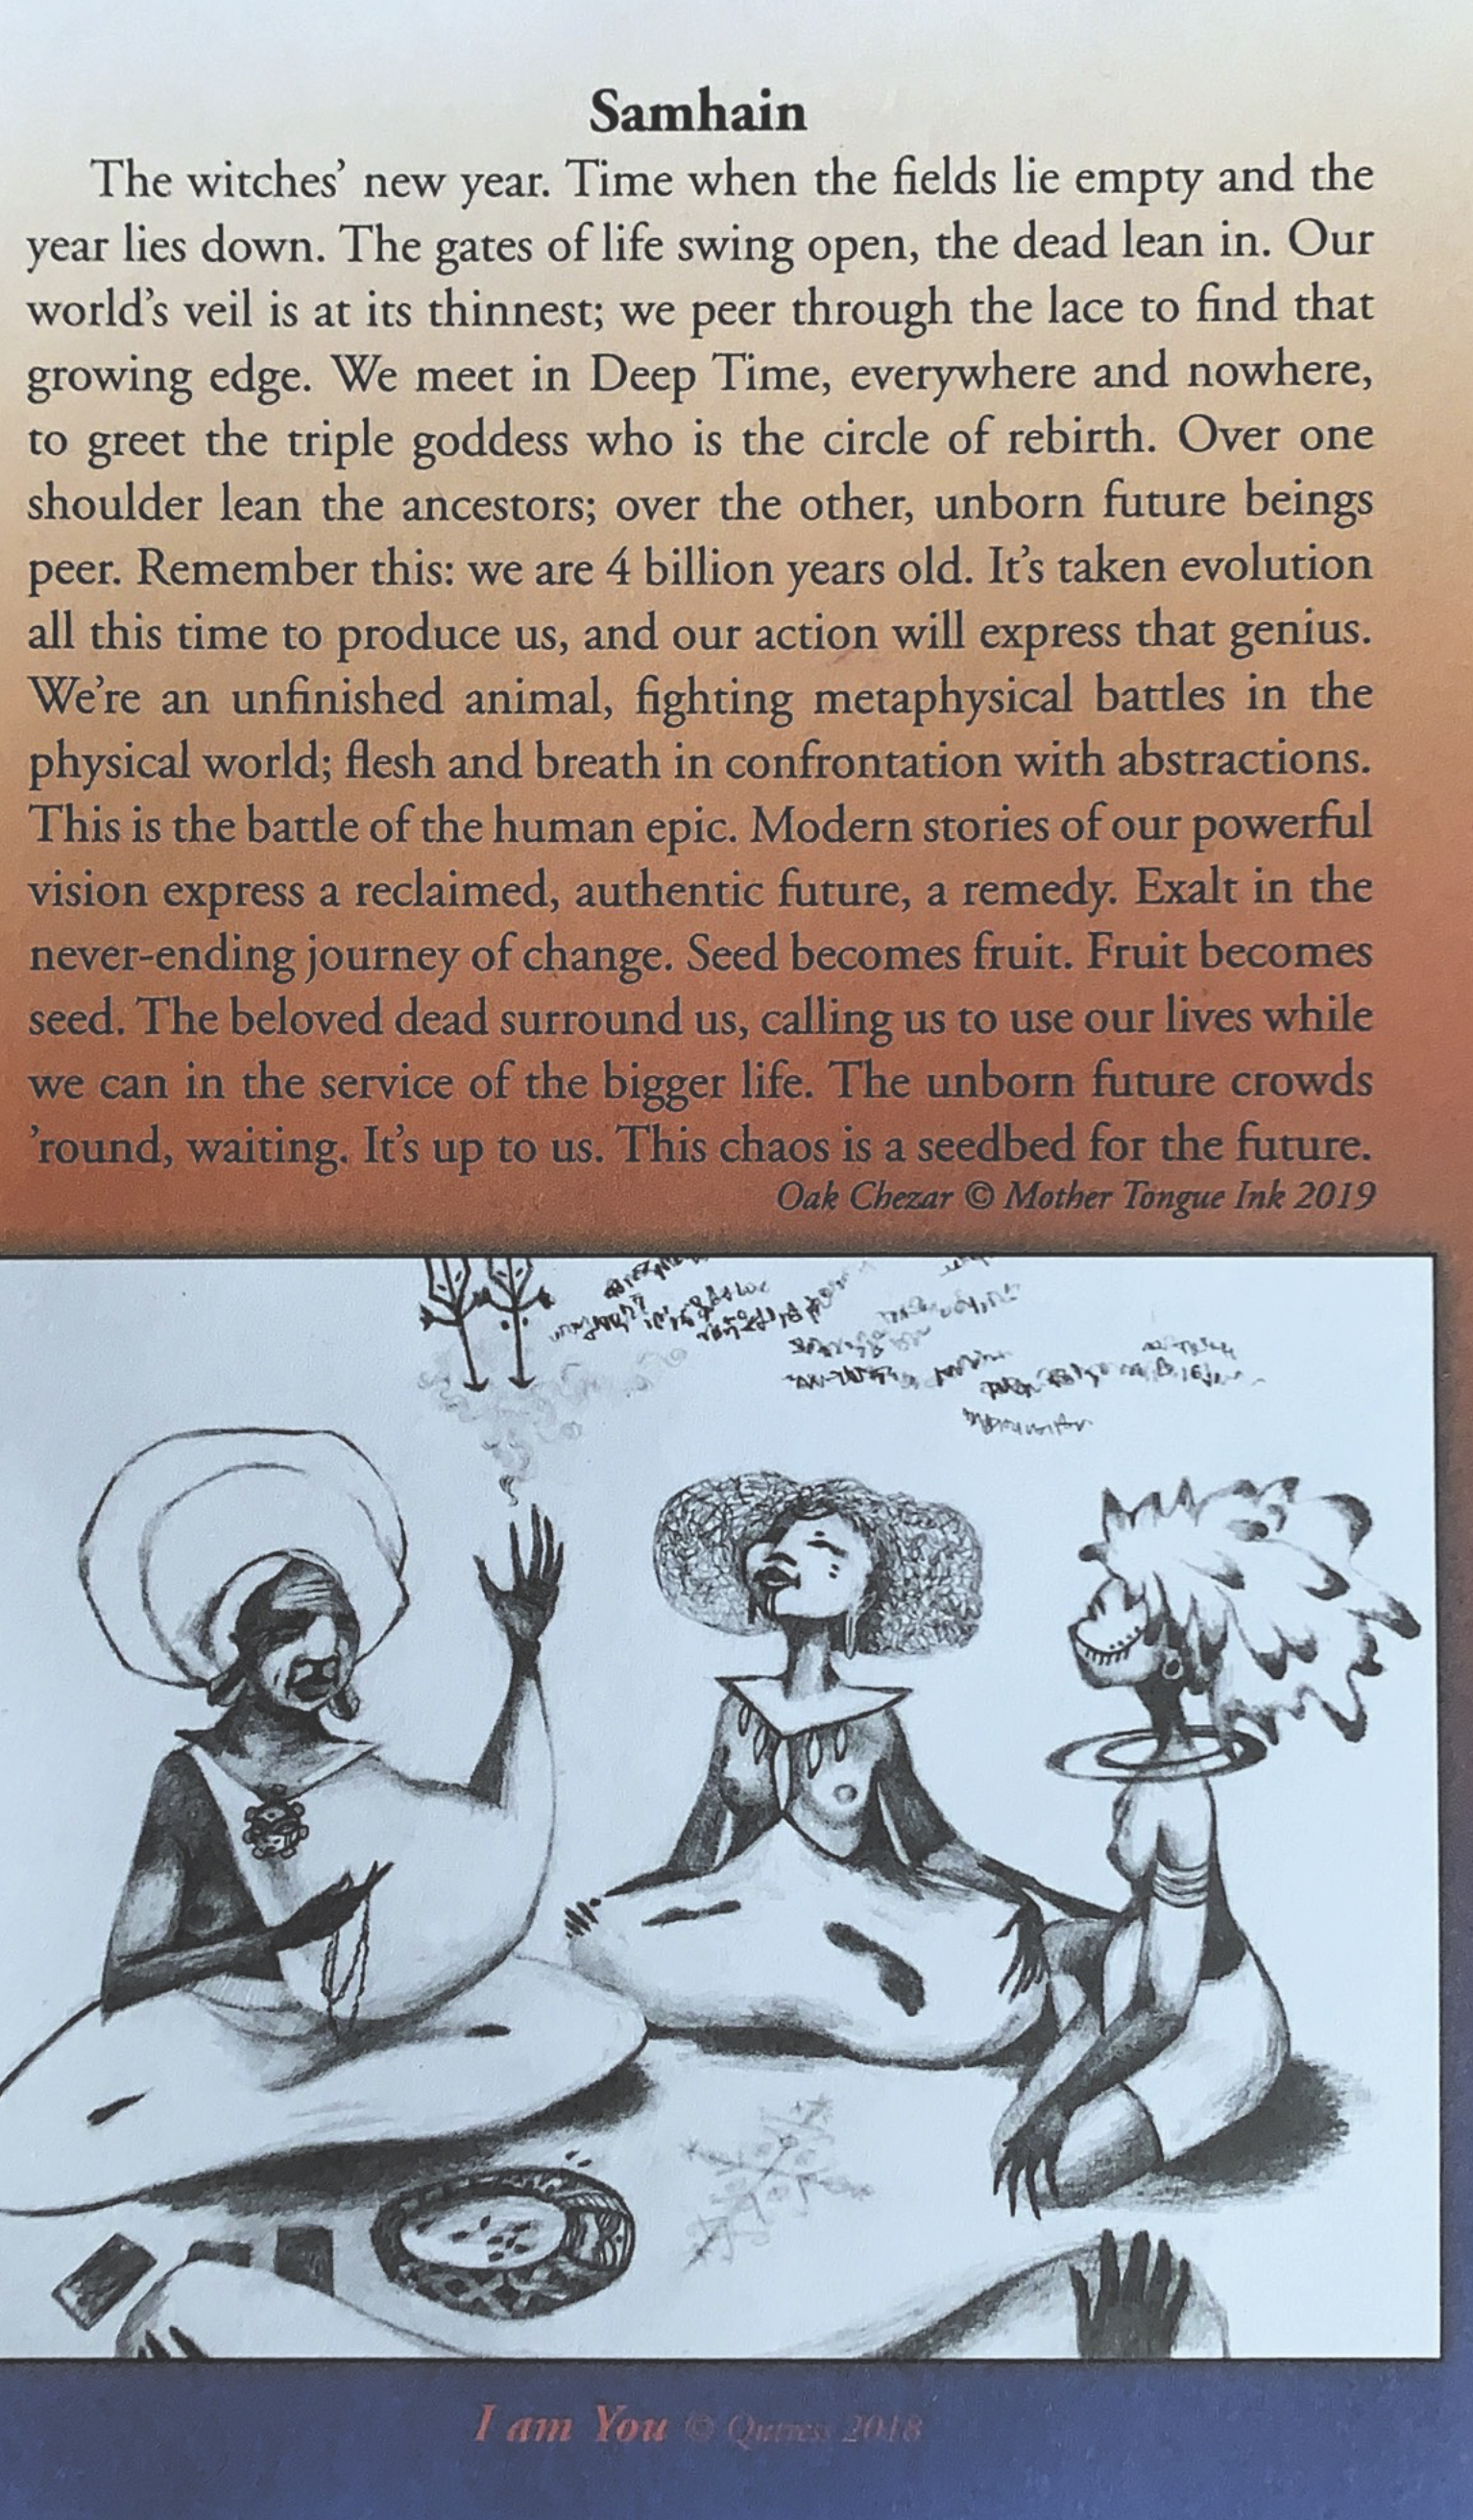 Samhain
The witches’ new year. Time when the fields lie empty and the
year lies down. The gates of life swing open, the dead lean in. Our
world’s veil is at its thinnest; we peer through the lace to find that
growing edge. We meet in Deep Time, everywhere and nowhere,
to greet the triple goddess who is the circle of rebirth. Over one
shoulder lean the ancestors; over the other, unborn future beings
peer. Remember this: we are 4 billion years old. It’s taken evolution
all this time to produce us, and our action will express that genius.
We’re an unfinished animal, fighting metaphysical battles in the
physical world; flesh and breath in confrontation with abstractions.
This is the battle of the human epic. Modern stories of our powerful
vision express a reclaimed, authentic future, a remedy. Exalt in the
never-ending journey of change. Seed becomes fruit. Fruit becomes
seed. The beloved dead surround us, calling us to use our lives while
we can in the service of the bigger life. The unborn future crowds
’round, waiting. It’s up to us. This chaos is a seedbed for the future.
Oak Chezar © Mother Tongue Ink 2019
I am You © Qutress 2018